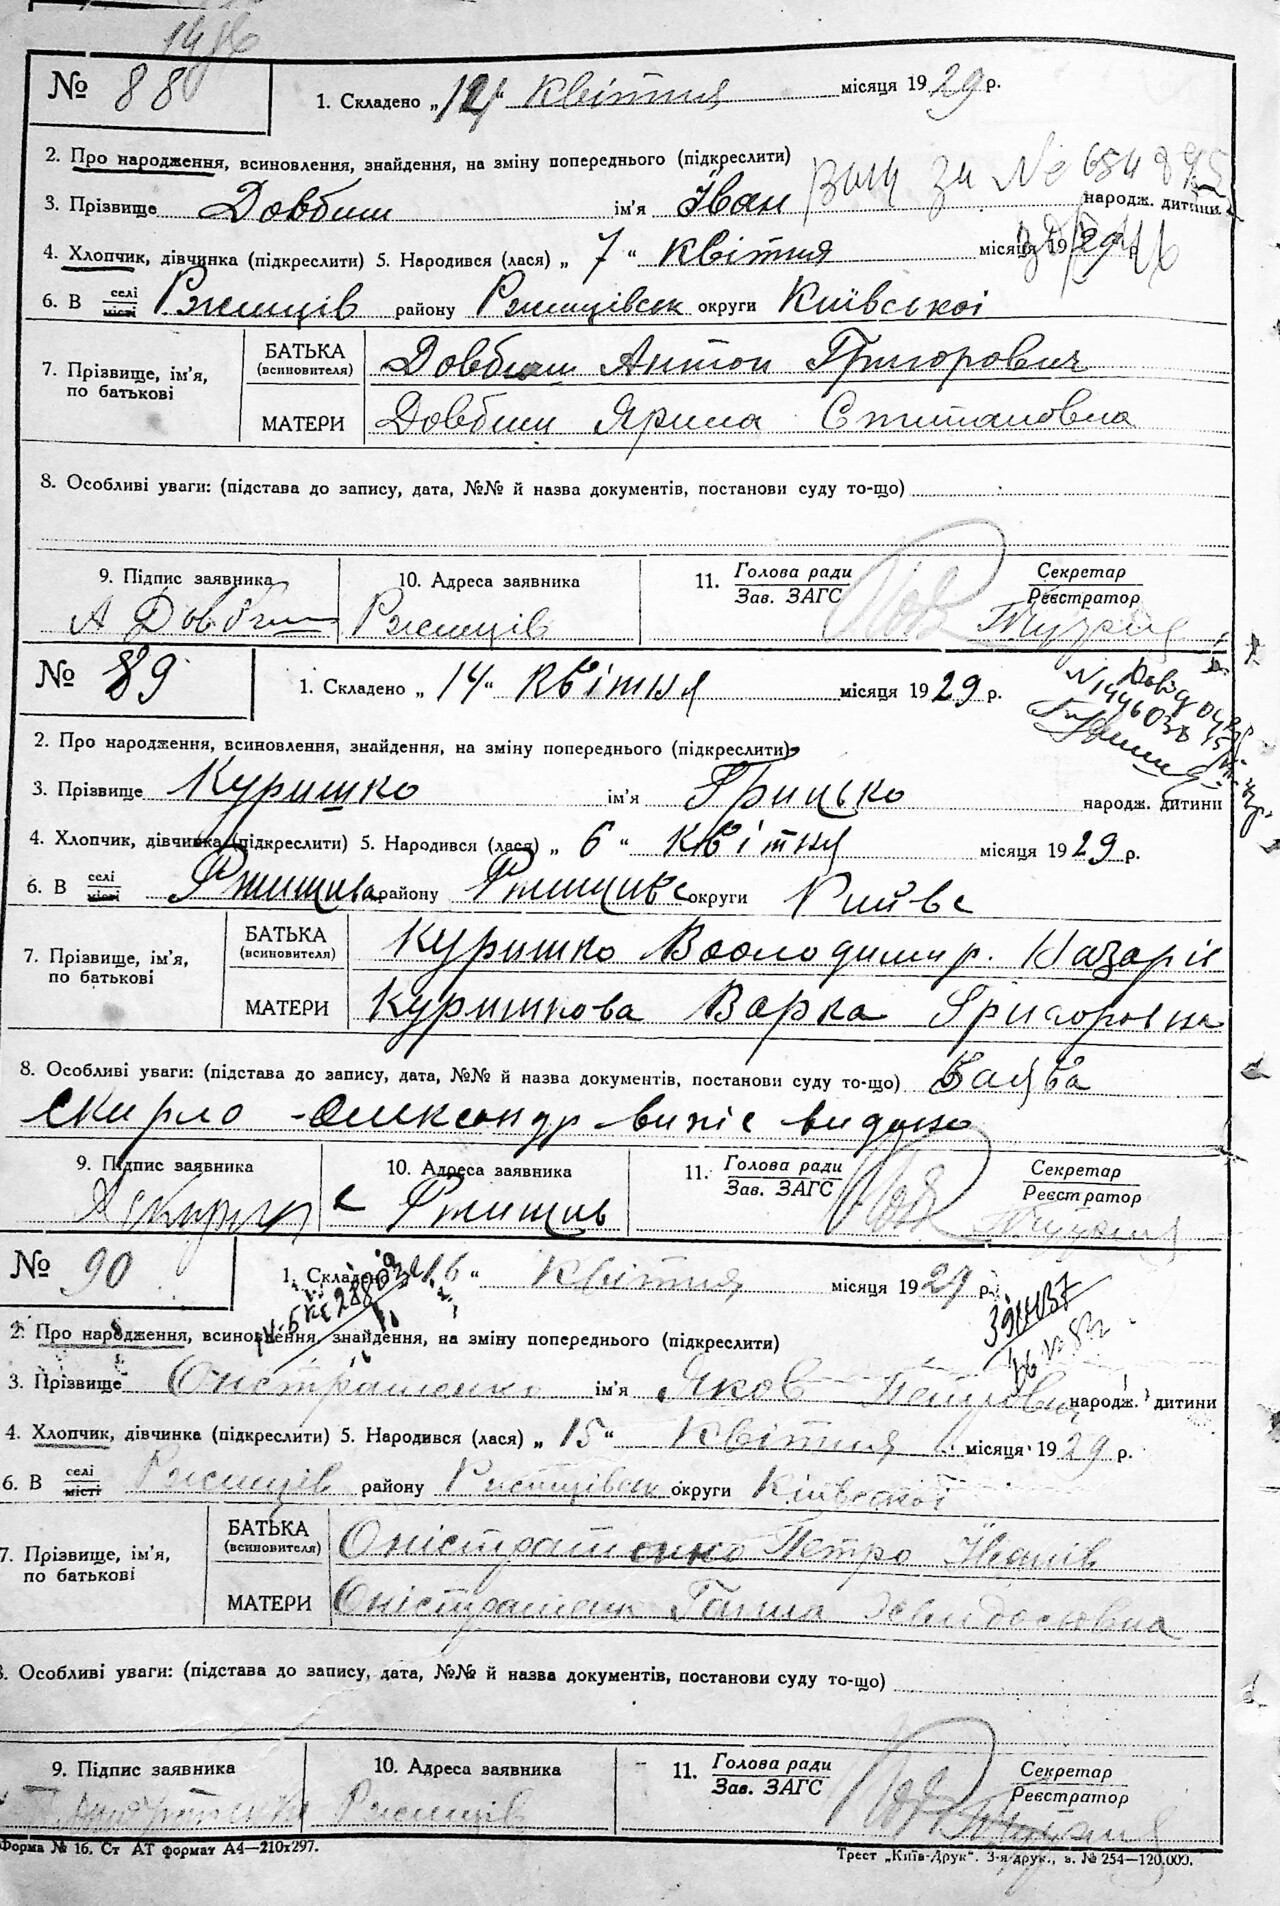 № 88 1. Складено „12“ квітня місяця 1929 р.
2. Про народження, всиновлення, знайдення, на зміну попереднього (підкреслити)
за № 684875
3. Прізвище Довбиш ім'я Іван народж. дитини
4. Хлопчик, дівчинка (підкреслити) 5. Народився (лася) „7“ квітня місяця 1929 р
6. В селі місті Ржищів району Ржищівськ округи Київської
7. Прізвище, ім'я, по батькові
БАТЬКА (всиновителя) Довбиш Антон Григорович
МАТЕРИ Довбиш Ярина Степановна
8. Особливі уваги: (підстава до запису, дата, №№ й назва документів, постанови суду то-що)
9. Підпис заявника 10. Адреса заявника 11. Голова ради Зав. ЗАГС Секретар Реєстратор
А Довбиш Ржищів
№ 89 1. Складено „14“ квітня місяця 1929 р.
2. Про народження, всиновлення, знайдення, на зміну попереднього (підкреслити)
3. Прізвище Куришко ім'я Грицько народж. дитини
4. Хлопчик, дівчинка (підкреслити) 5. Народився (лася) „6“ квітня місяця 1929 р.
6. В селі місті Ржищів району Ржищивс округи Київс
7. Прізвище, ім'я, по батькові
БАТЬКА (всиновителя) Куришко Володимир. Назарів
МАТЕРИ Куришкова Варка Григоровна
8. Особливі уваги: (підстава до запису, дата, №№ й назва документів, постанови суду то-що) Заява
Скирло Олександр випис видано
9. Підпис заявника 10. Адреса заявника 11. Голова ради Зав. ЗАГС Секретар Реєстратор
с Ржищів
№ 90 1. Складено „16“ квітня місяця 1929 р.
2. Про народження, всиновлення, знайдення, на зміну попереднього (підкреслити)
3. Прізвище Оністратенко ім'я Яков Петрович народж. дитини
4. Хлопчик, дівчинка (підкреслити) 5. Народився (лася) „15“ квітня місяця 1929 р.
6. В селі місті Ржищів району Ржищівськ округи Київської
7. Прізвище, ім'я, по батькові
БАТЬКА (всиновителя) Оністратенко Петро Іванів
МАТЕРИ Оністратенк Ганна
8. Особливі уваги: (підстава до запису, дата, №№ й назва документів, постанови суду то-що)
9. Підпис заявника 10. Адреса заявника 11. Голова ради Зав. ЗАГС Секретар Реєстратор
Ржищів
Форма № 16. Ст АТ формат А4—210х297. Трест „Київ-Друк“. 3-я друк., з. № 254—120.000.